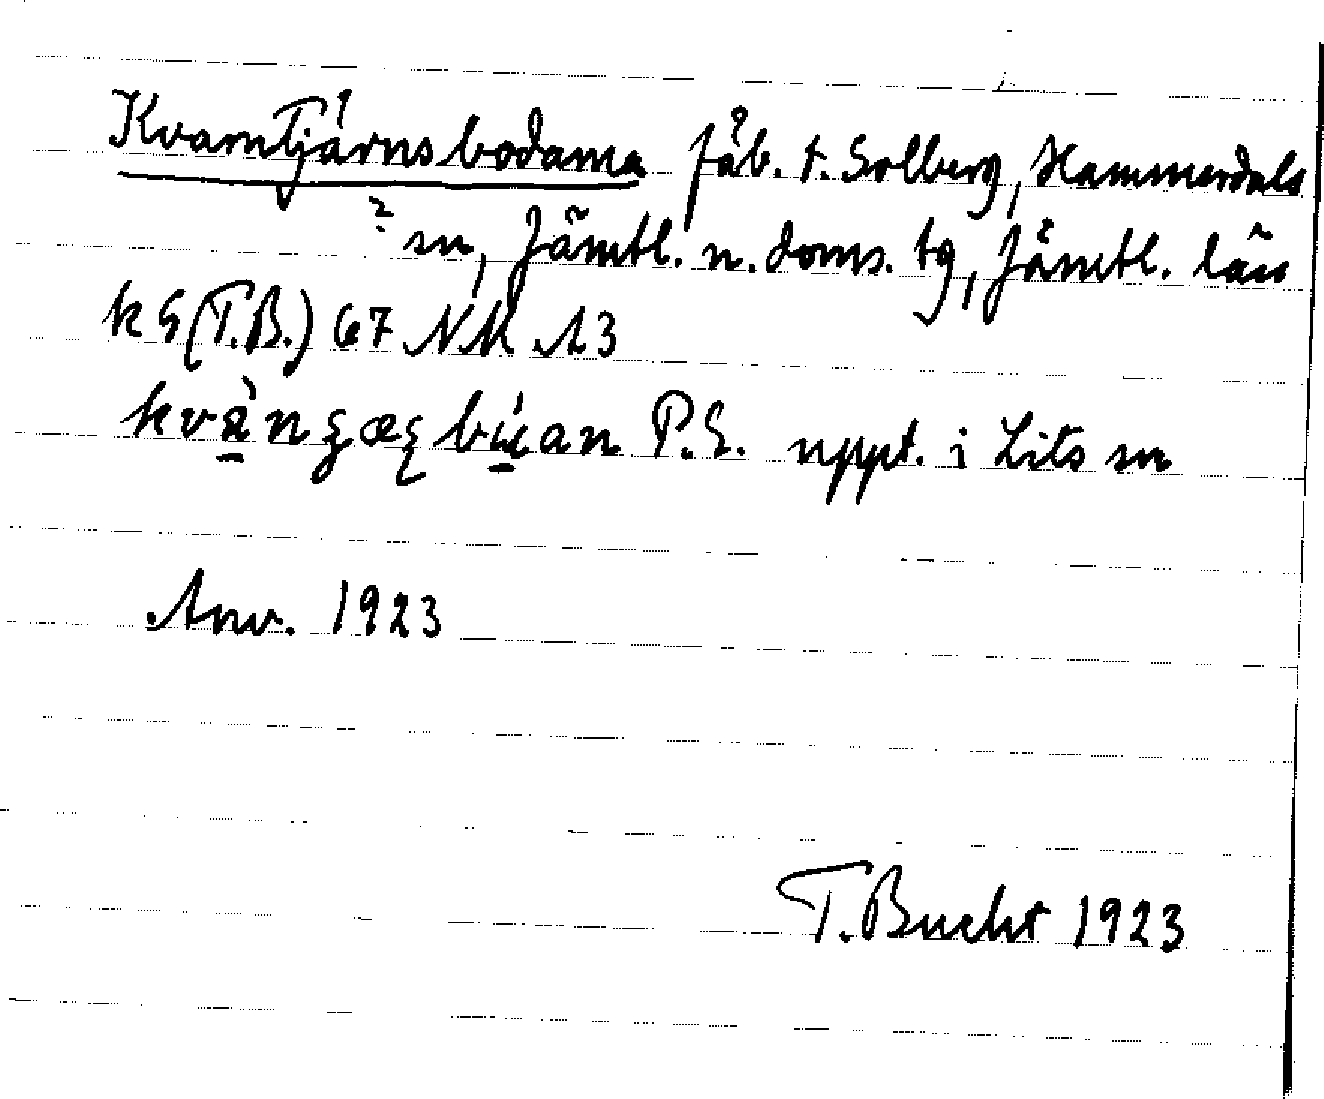 Kvarntjärnsbodarna fäb. t. Solberg, Hammerdals
? sn, Jämtl. n. doms. tg, Jämtl. län
k G (T.B.) 67 NK 13
P.E. uppt. i Lits sn
Anv. 1923
T. Bucht 1923